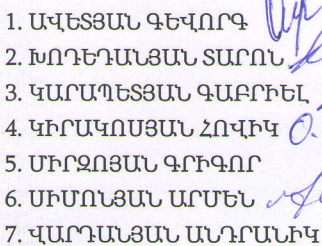 1. ԱՎԵՏՅԱՆ ԳԵՎՈՐԳ
2. ԽՈԴԵԴԱՆՅԱՆ ՏԱՐՈՆ
3. ԿԱՐԱՊԵՏՅԱՆ ԳԱԲՐԻԵԼ
4. ԿԻՐԱԿՈՍՅԱՆ ՀՈՎԻԿ
5. ՄԻՐԶՈՅԱՆ ԳՐԻԳՈՐ
6. ՍԻՄՈՆՅԱՆ ԱՐՄԵՆ
7. ՎԱՐԴԱՆՅԱՆ ԱՆԴՐԱՆԻԿ